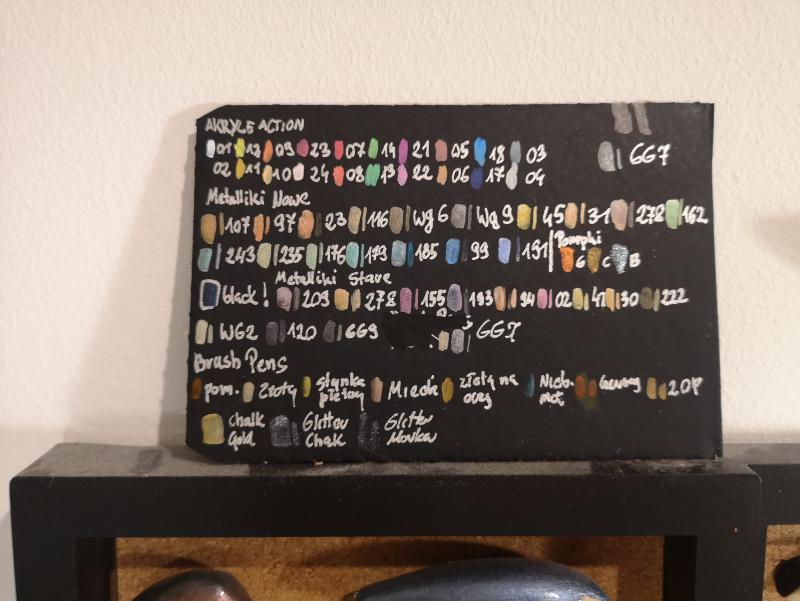 AKRYLE ACTION
01 12 09 23 07 14 21 05 18 03 GG7
02 11 10 24 08 13 22 06 17 04
Metalliki Nowe
107 97 23 116 Wg 6 Wg 9 45 31 278 162
243 235 176 179 185 99 191 Pompki G C B
Metalliki Stare
black! 209 278 155 193 94 02 41 30 222
WG2 120 GG9 GG7
Brush Pens
pom. Złoty płetwy Miedź złoty na ocy Nieb. mot 20P
Chalk Gold Glitter Chalk Glitter